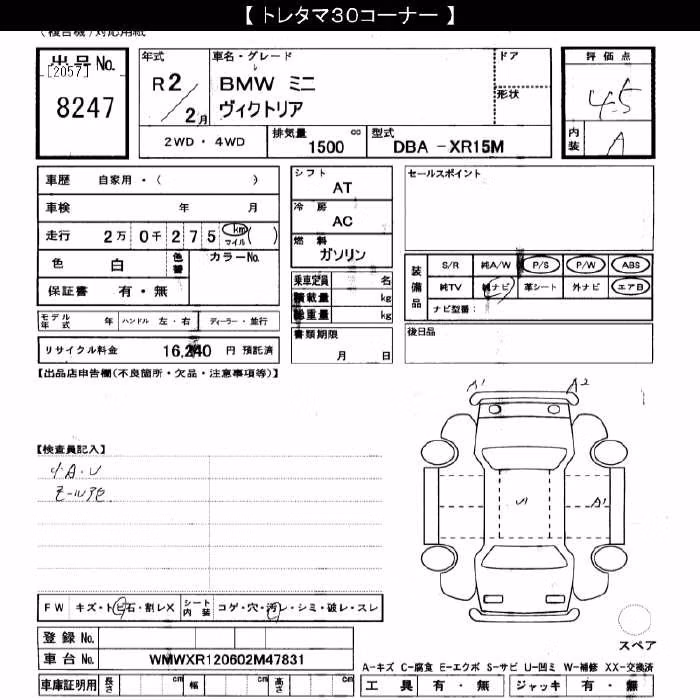 【 トレタマ30コーナー 】
(複合機)対応用紙
出品 No.
[2057]
8247
年式
R 2 / 2 月
車名・グレード
BMW ミニ
ヴィクトリア
ドア
形状
評価点
4.5
内装 A
2WD・4WD
排気量 1500 cc
型式 DBA －XR15M
車歴 自家用・( )
車検 年 月
走行 2万 0千 2 7 5 km マイル ( )
色 白 色番 カラーNo.
保証書 有・無
モデル年式 年 ハンドル 左・右 ディーラー・並行
リサイクル料金 16,240 円 預託済
シフト
AT
冷房
AC
燃料
ガソリン
乗車定員 名
積載量 kg
総重量 kg
書類期限
月 日
セールスポイント
装備品
S/R 純A/W P/S P/W ABS
純TV 純ナビ 革シート 外ナビ エアB
ナビ型番：
後日品
【出品店申告欄(不良箇所・欠品・注意事項等)】
A1 A2
U1 A1
【検査員記入】
4A.U
FW キズ・トビ石・割レX シート内装 コゲ・穴・汚レ・シミ・破レ・スレ
登録 No.
車台 No. WMWXR120602M47831
車庫証明用 長さ cm 幅 cm 高さ cm
スペア
A-キズ C-腐食 E-エクボ S-サビ U-凹ミ W-補修 XX-交換済
工具 有・無 ジャッキ 有・無